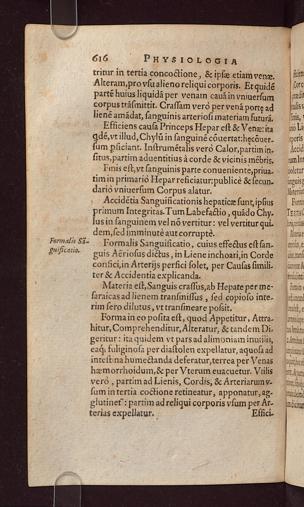 616 PHYSIOLOGIA
tritur in tertia concoctione, & ipsæ etiam venæ.
Alteram, pro vsu alieno reliqui corporis. Et quidē
partē huius liquidā per venam cauā in vniuersum
corpus trāsmittit. Crassam verò per venā portę ad
liené amādat, sanguinis arteriosi materiam futurā.
Efficiens causa Princeps Hepar est & Venæ: ita
qdē, vt illud, Chylū in sanguinē cōuertat: hę cōuer-
sum pficiant. Instrumētalis verò Calor, partim in-
situs, partim aduentitius à corde & vicinis mēbris.
Finis est, vt sanguinis parte conueniente, priua-
tim in primariò Hepar reficiatur: publicè & secun-
dariò vniuersum Corpus alatur.
Accidētia Sanguificationis hepaticæ sunt, ipsius
primum Integritas. Tum Labefactio, quādo Chy-
lus in sanguinem vel nō vertitur: vel vertitur qui-
dem, sed imminutè aut corruptè.
Formalis Sā-
guificatio.
Formalis Sanguificatio, cuius effectus est san-
guis Aëriosus dictus, in Liene inchoari, in Corde
consici, in Arterijs perfici solet, per Causas simili-
ter & Accidentia explicanda.
Materia est, Sanguis crassus, ab Hepate per me-
saraicas ad lienem transmissus, sed copioso inte-
rim sero dilutus, vt transmeare possit.
Forma in eo posita est, quod Appetitur, Attra-
hitur, Comprehenditur, Alteratur, & tandem Di-
geritur: ita quidem vt pars ad alimoniam inutilis,
eaq́; fuliginosa per diastolen expellatur, aquosa ad
intestina humectanda deferatur, terrea per Venas
hæmorrhoidum, & per Vterum euacuetur. Vtilis
verò, partim ad Lienis, Cordis, & Arteriarum v-
sum in tertia coctione retineatur, apponatur, ag-
glutinet': partim ad reliqui corporis vsum per Ar-
terias expellatur.
Effici-